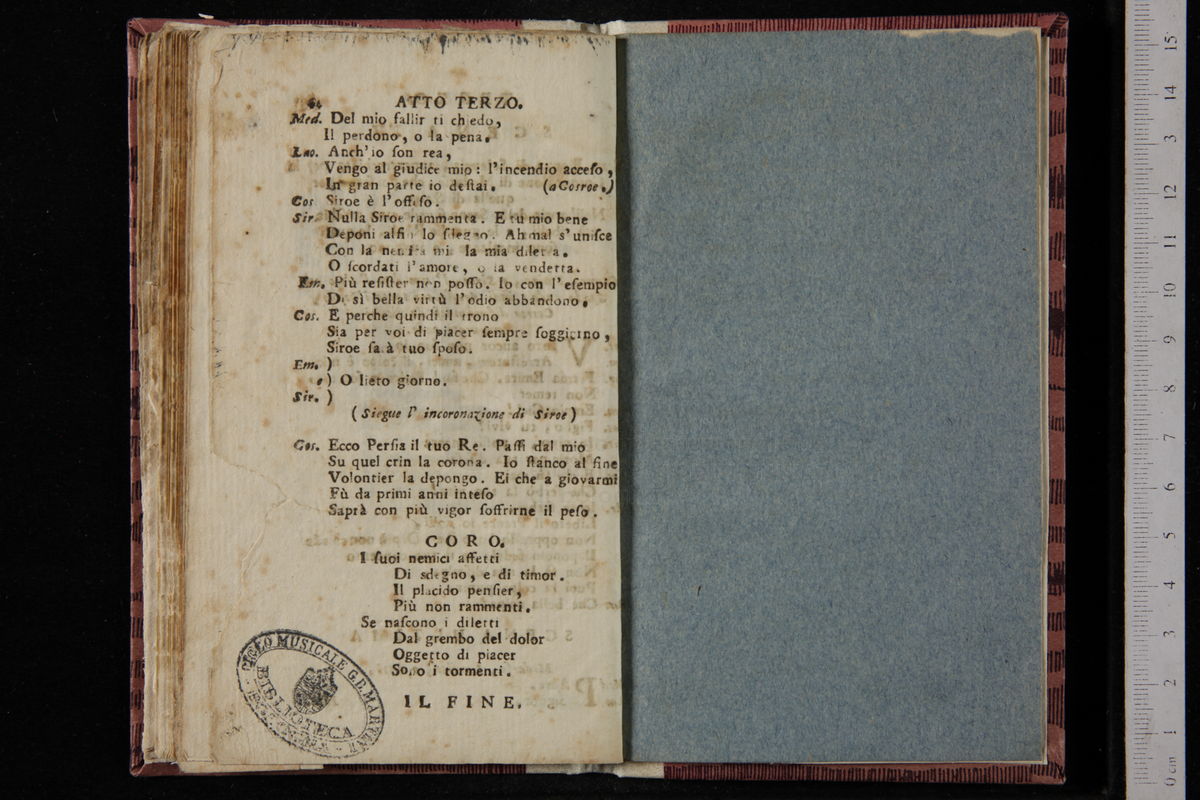 64 ATTO TERZO.
Med. Del mio fallir ti chiedo,
Il perdono, o la pena.
Lao. Anch'io ſon rea,
Vengo al giudice mio: l'incendio acceſo,
In gran parte io deſtai. (a Cosroe.)
Cos Siroe è l'offeſo.
Sir. Nulla Siroe rammenta. E tu mio bene
Deponi alfin lo ſdegno. Ah mal s'uniſce
Con la nemica mia la mia diletta.
O ſcordati l'amore, o la vendetta.
Em. Più reſiſter non poſſo. Io con l'eſempio
Di sì bella virtù l'odio abbandono.
Cos. E perche quindi il trono
Sia per voi di piacer ſempre ſoggiorno,
Siroe ſarà tuo ſpoſo.
Em. )
e ) O lieto giorno.
Sir. )
(Siegue l' incoronazione di Siroe)
Cos. Ecco Perſia il tuo Re. Paſſi dal mio
Su quel crin la corona. Io ſtanco al fine
Volontier la depongo. Ei che a giovarmi
Fù da primi anni inteſo
Saprà con più vigor ſoffrirne il peſo.
CORO.
I ſuoi nemici affetti
Di sdegno, e di timor.
Il placido penſier,
Più non rammenti.
Se naſcono i diletti
Dal grembo del dolor
Oggetto di piacer
Sono i tormenti.
IL FINE.
LICEO MUSICALE G.B. MARTINI
BIBLIOTECA
0 cm 1 2 3 4 5 6 7 8 9 10 11 12 3 14 15